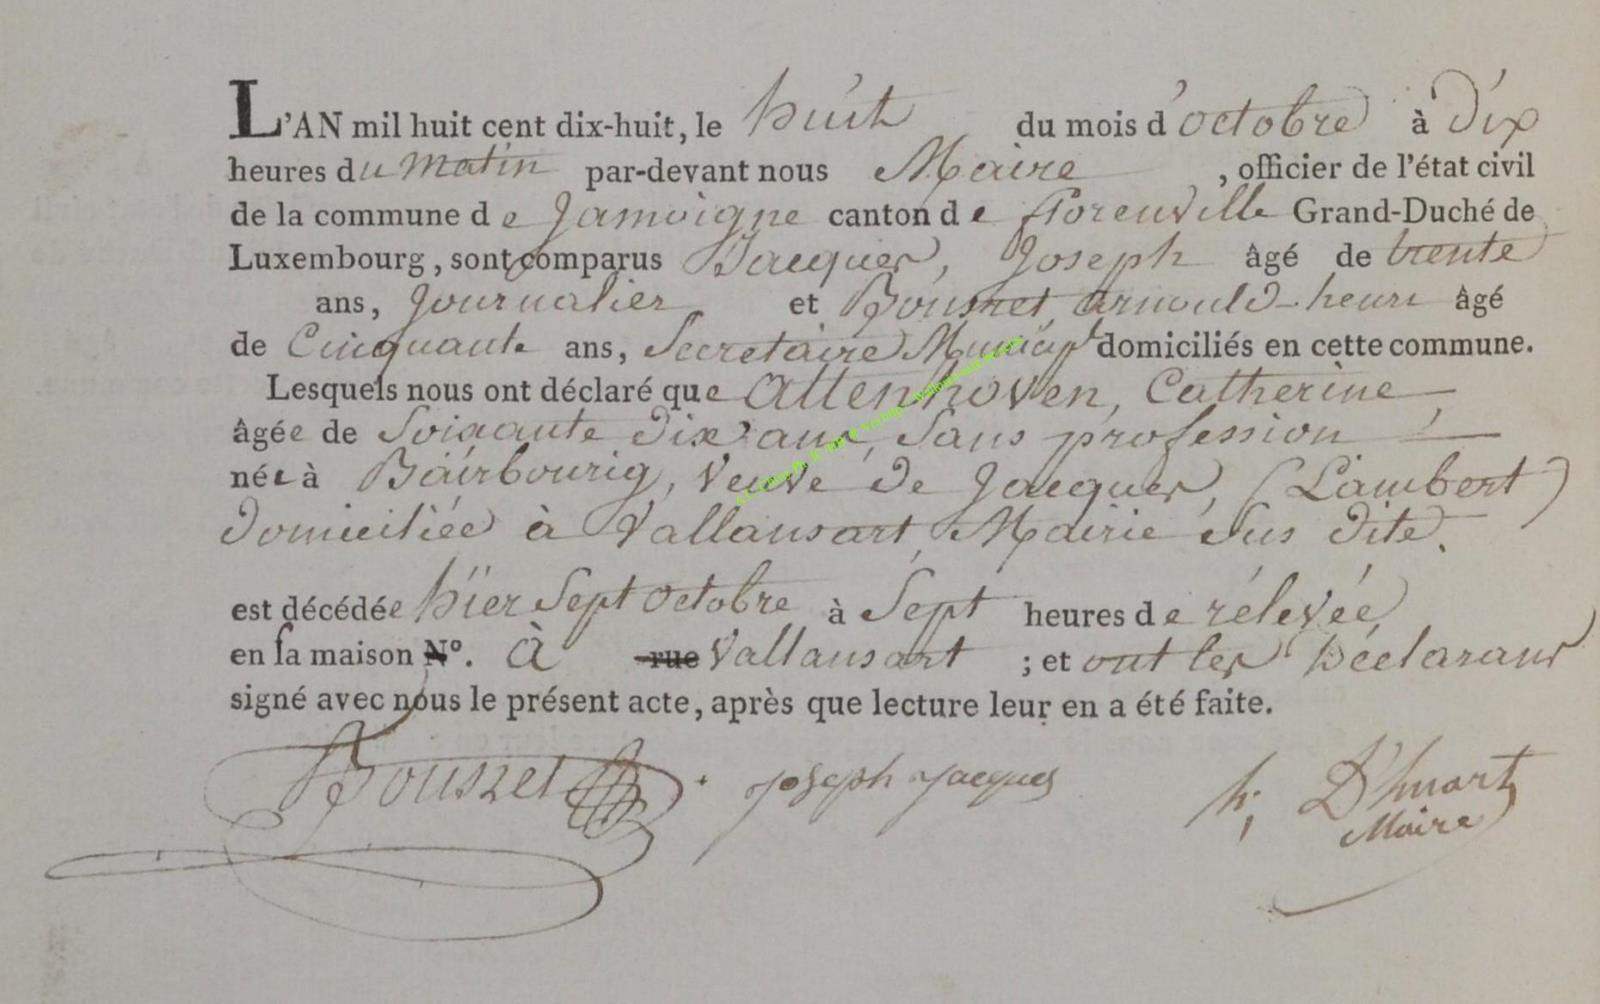 L'AN mil huit cent dix-huit, le huit du mois d'octobre à dix
heures du matin par-devant nous Maire , officier de l'état civil
de la commune de Jamoigne canton de florenville Grand-Duché de
Luxembourg, sont comparus Jacques, Joseph âgé de trente
ans, Journalier et Bousret, arnould-henri âgé
de Cinquante ans, Secretaire Municipl domiciliés en cette commune.
Lesquels nous ont déclaré que Attenhoven, Catherine,
âgée de Soixante dix ans, Sans profession
née à Bäirbourig, Veuve de Jacques, (Lambert)
domiciliée à Vallansart, Mairie sus dite.
est décédée hïer Sept octobre à Sept heures de rélevée
en sa maison N°. À rue Vallansart ; et ont les Déclarans
signé avec nous le présent acte, après que lecture leur en a été faite.
Bousret Joseph Jacques h; D'huart
Maire